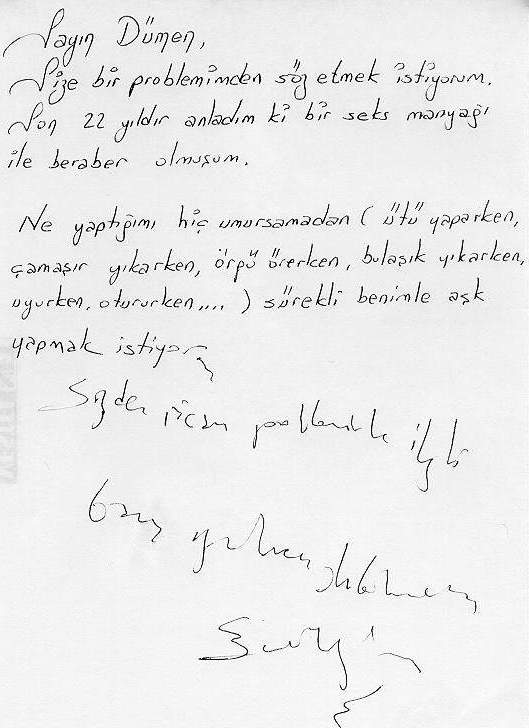 Sayın Dümen,
Size bir problemimden söz etmek istiyorum.
Son 22 yıldır anladım ki bir seks manyağı
ile beraber olmuşum.
Ne yaptığımı hiç umursamadan ( ütü yaparken,
çamaşır yıkarken, örpü örerken, bulaşık yıkarken,
uyurken, otururken,... ) sürekli benimle aşk
yapmak istiyor
Sizden ricam problemimle ilgili
bana yardımcı olabilmeniz